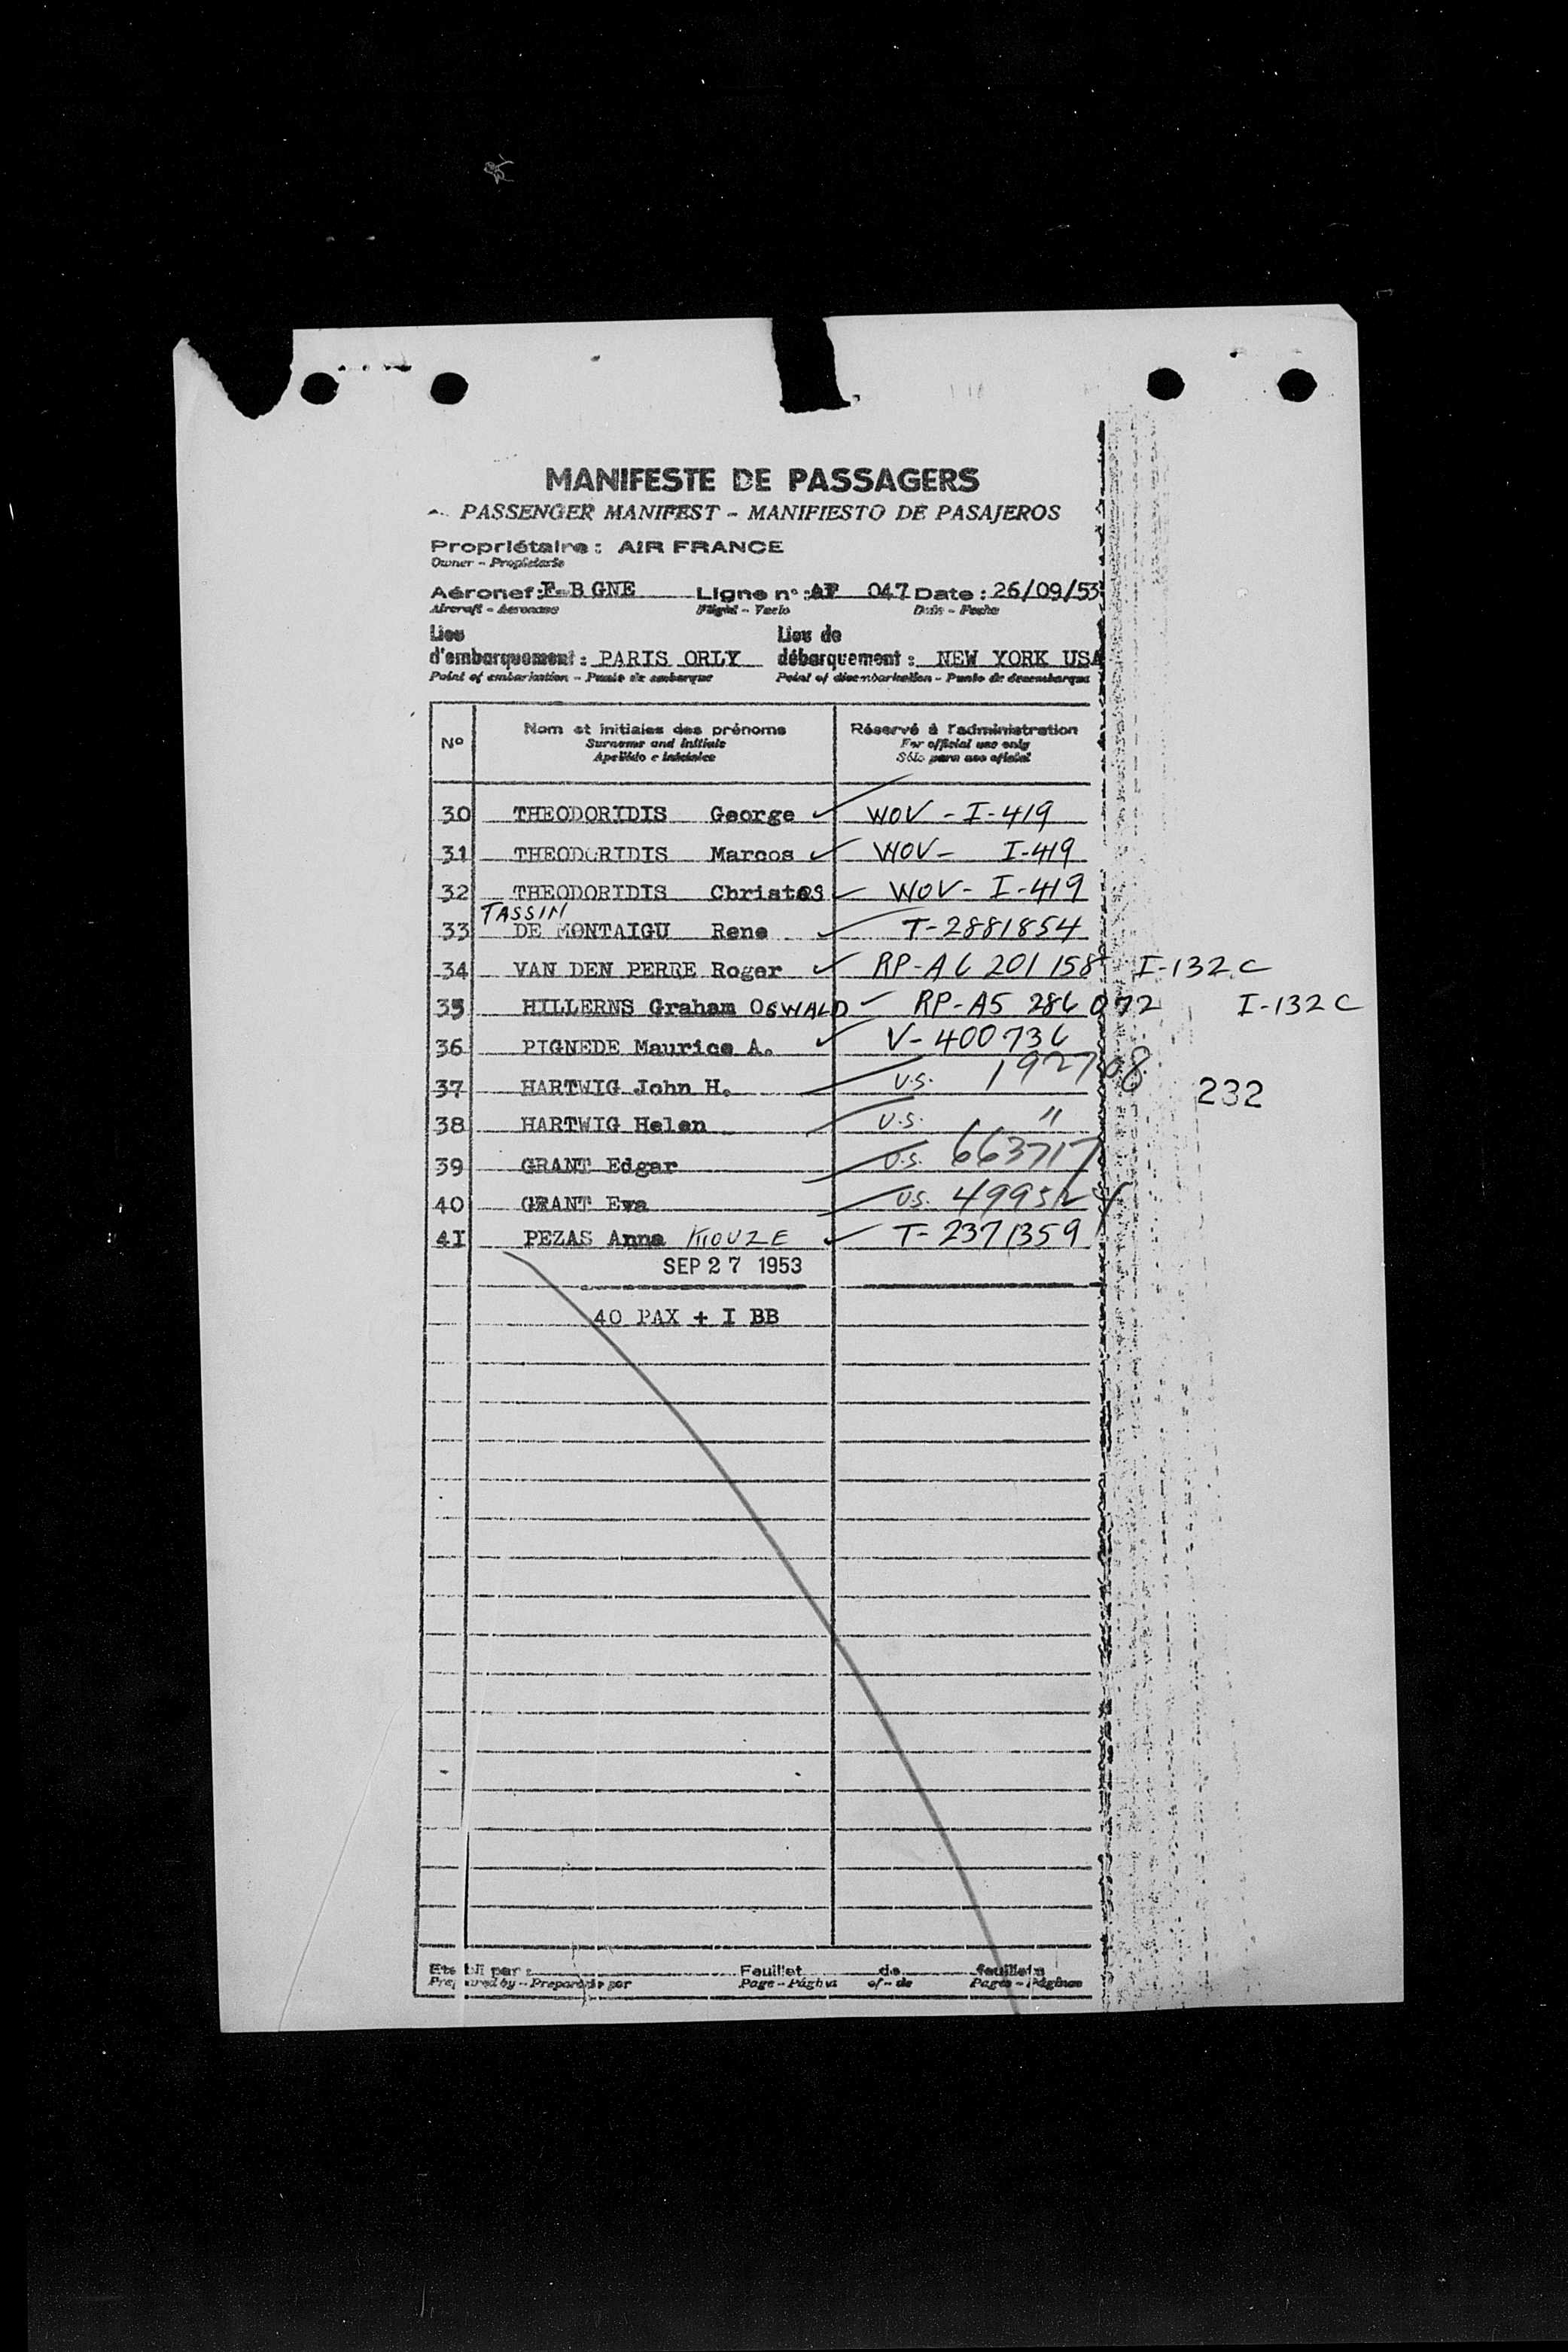 MANIFESTE DE PASSAGERS
PASSENGER MANIFEST - MANIFIESTO DE PASAJEROS
Propriétaire : AIR FRANCE
Owner - Propietario
Aéronef : F-BGNE Ligne n° : AF 047 Date : 26/09/53
Aircraft - Aeronave Flight - Vuelo Date - Fecha
Lieu d'embarquement : PARIS ORLY Lieu de débarquement : NEW YORK USA
Point of embarkation - Punto de embarque Point of disembarkation - Punto de desembarque
N° Nom et initiales des prénoms Réservé à l'administration
Surname and initials For official use only
Apellido e iniciales Sólo para uso oficial
30 THEODORIDIS George WOV - I-419
31 THEODORIDIS Marcos WOV - I-419
32 THEODORIDIS Christos WOV - I-419
TASSIN
33 DE MONTAIGU Rene T-2881854
34 VAN DEN PERRE Roger RP-A6 201 158 I-132 C
35 HILLERNS Graham OSWALD RP-A5 286 072 I-132 C
36 PIGNEDE Maurice A. V-400736
37 HARTWIG John H. U.S. 192708 232
38 HARTWIG Helen U.S. "
39 GRANT Edgar U.S. 663717
40 GRANT Eva U.S.
41 PEZAS Anna T-2371359
SEP 27 1953
40 PAX + I BB
Etabli par : Feuillet de feuillets
Prepared by - Preparado por Page - Página of - de Pages - Páginas